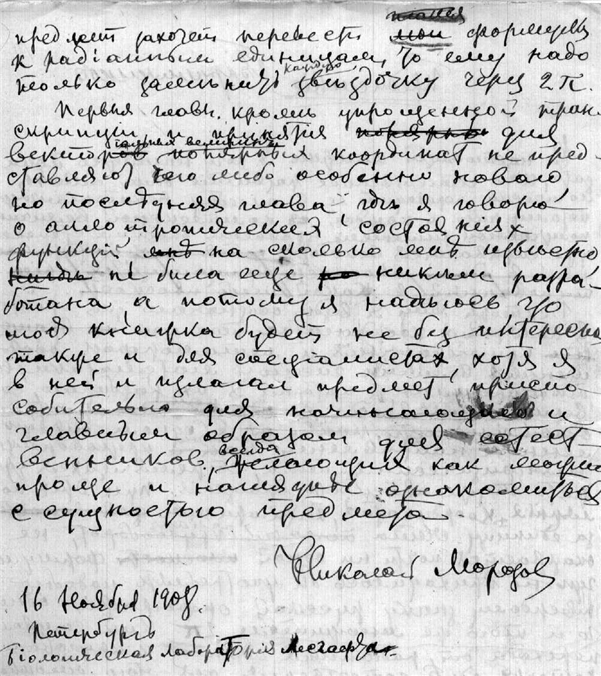 предметъ захочетъ перевести такія формулы
къ радіаннымъ единицамъ, то ему надо
только замѣнить каждую звѣздочку черезъ 2π.
Первыя главы, кромѣ упрощенной тран
скрипціи и принятія для
векторовъ полярныхъ координатъ не пред-
ставляютъ чего либо особенно новаго,
но послѣдняя глава, гдѣ я говорю
о аллотропическихъ состояніяхъ
функцій, на сколько мнѣ извѣстно
не была еще никѣмъ разра-
ботана, а потому я надѣюсь что
моя книжка будетъ не безъ интереса
также и для спеціалистовъ, хотя я
въ ней и излагалъ предметъ приспо
собительно для начинающихъ и
главнымъ образомъ для естест
венниковъ, желающихъ какъ можно
проще и нагляднѣе ознакомиться
съ сущностью предмета
Николай Морозовъ
16 Ноября 1908.
Петербургъ
Біологическая лабораторія Лесгафта.